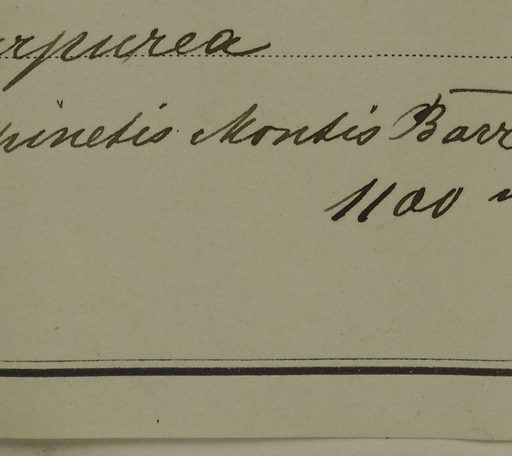 urpurea
pinetis Montis Barr
1100 m